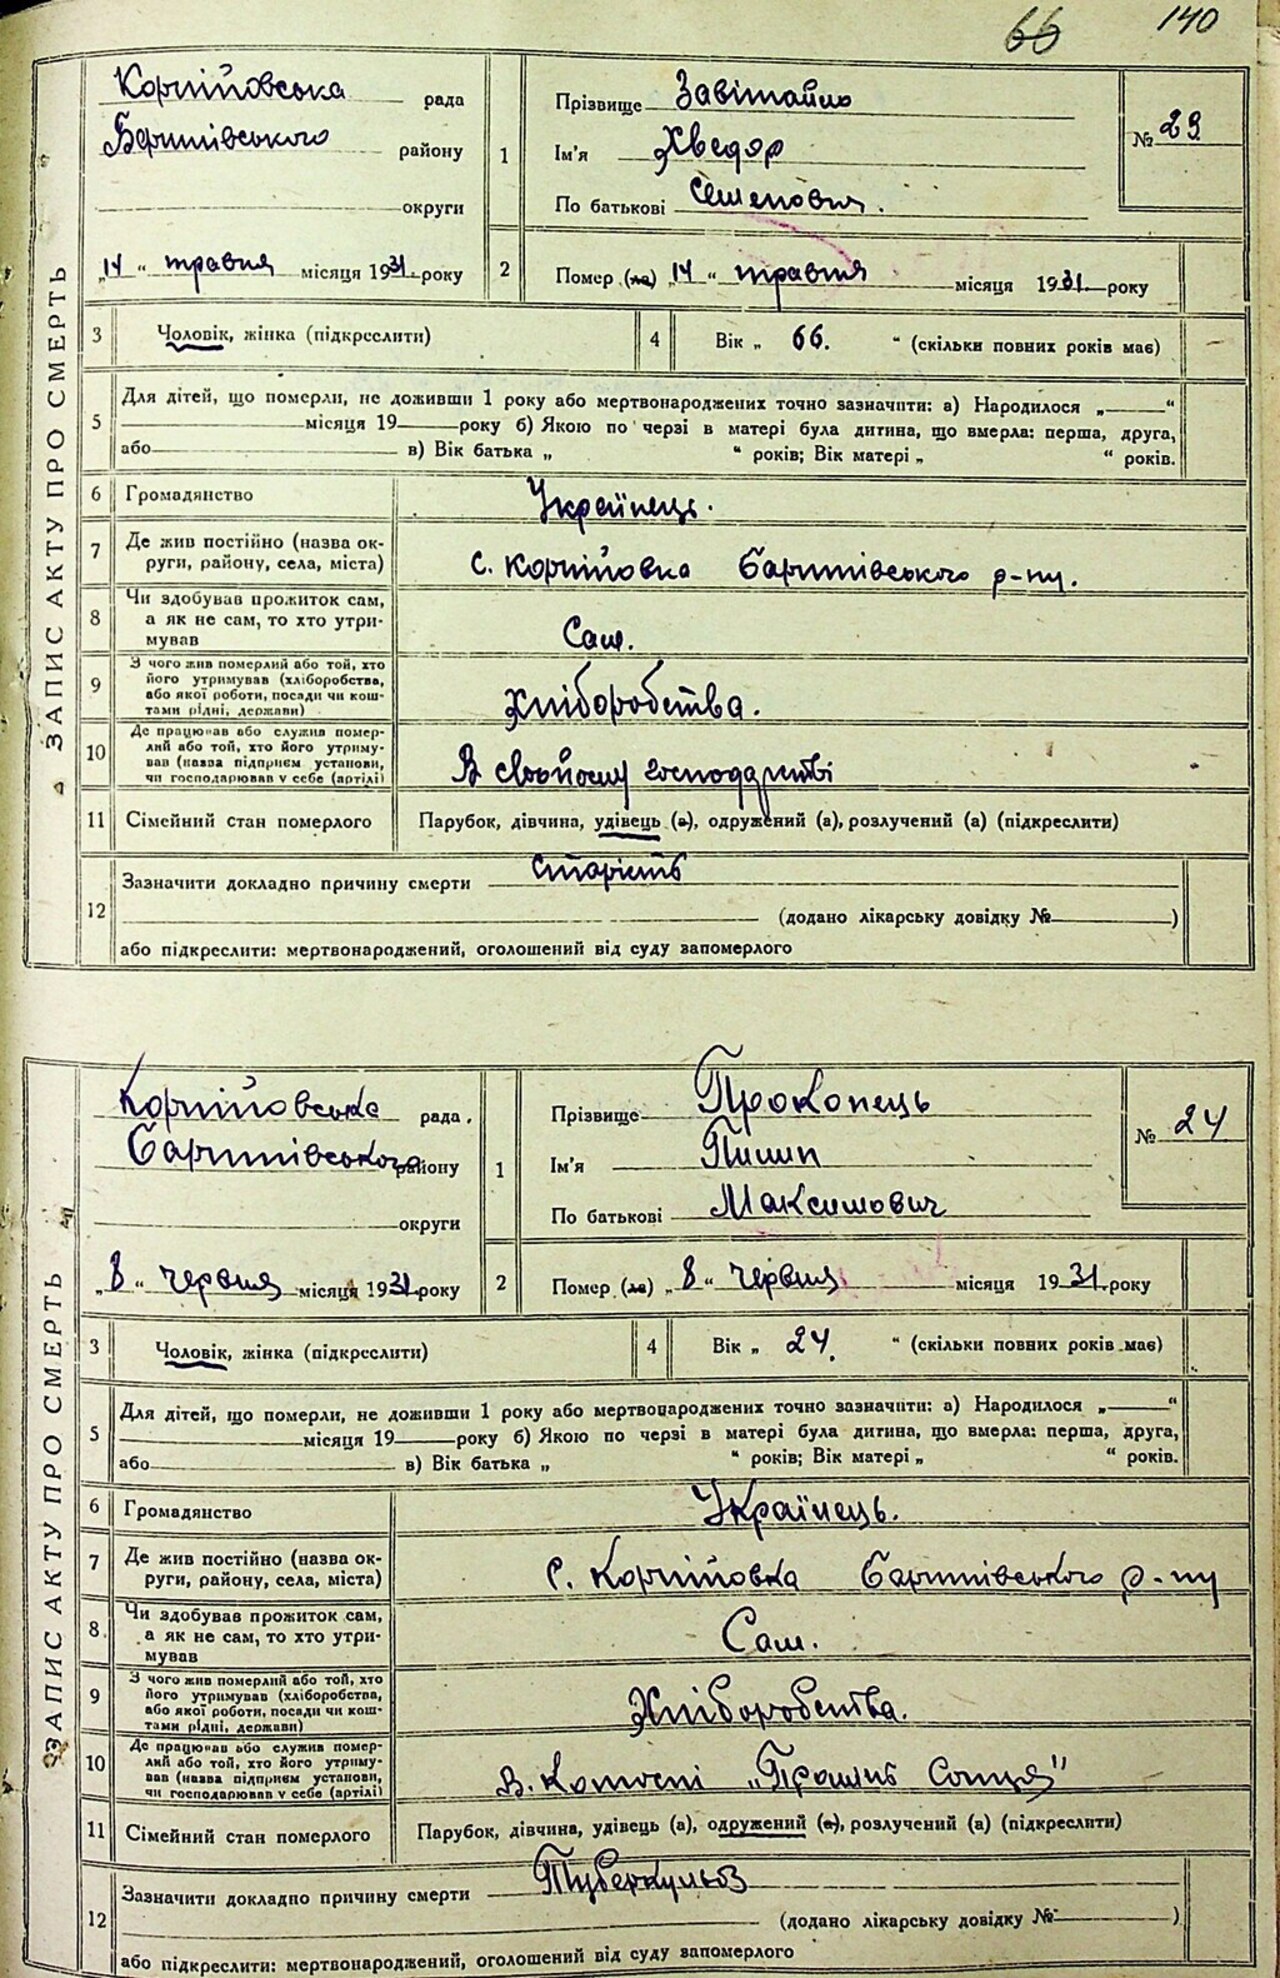 66 140
ЗАПИС АКТУ ПРО СМЕРТЬ
Корнійовська рада
Баришівського району
округи
„14“ травня місяця 1931 року
1
Прізвище Завітайло
Ім'я Хведор
По батькові Семенович.
№ 23
2
Помер (ла) „14“ травня місяця 1931. року
3 Чоловік, жінка (підкреслити)
4 Вік „ 66. “ (скільки повних років має)
5 Для дітей, що померли, не доживши 1 року або мертвонароджених точно зазначити: а) Народилося „ “
місяця 19 року б) Якою по черзі в матері була дитина, що вмерла: перша, друга,
або в) Вік батька „ “ років; Вік матері „ “ років.
6 Громадянство Українець.
7 Де жив постійно (назва ок-
руги, району, села, міста) с. Корнійовка Баришівського р-ну.
8 Чи здобував прожиток сам,
а як не сам, то хто утри-
мував Сам.
9 З чого жив померлий або той, хто
його утримував (хліборобства,
або якої роботи, посади чи кош-
тами рідні, держави) Хліборобства.
10 Де працював або служив помер-
лий або той, хто його утриму-
вав (назва підприєм установи,
чи господарював у себе (артілі) В свойому господарстві
11 Сімейний стан померлого Парубок, дівчина, удівець (а), одружений (а), розлучений (а) (підкреслити)
12 Зазначити докладно причину смерти старість
(додано лікарську довідку № )
або підкреслити: мертвонароджений, оголошений від суду запомерлого
ЗАПИС АКТУ ПРО СМЕРТЬ
Корнійовська рада.
Баришівського району
округи
„8“ червня місяця 1931 року
1
Прізвище Прокопець
Ім'я Пилип
По батькові Максимович
№ 24
2
Помер (ла) „8“ червня місяця 1931. року
3 Чоловік, жінка (підкреслити)
4 Вік „ 24. “ (скільки повних років має)
5 Для дітей, що померли, не доживши 1 року або мертвонароджених точно зазначити: а) Народилося „ “
місяця 19 року б) Якою по черзі в матері була дитина, що вмерла: перша, друга,
або в) Вік батька „ “ років; Вік матері „ “ років.
6 Громадянство Українець.
7 Де жив постійно (назва ок-
руги, району, села, міста) с. Корнійовка Баришівського р-ну
8. Чи здобував прожиток сам,
а як не сам, то хто утри-
мував Сам.
9 З чого жив померлий або той, хто
його утримував (хліборобства,
або якої роботи, посади чи кош-
тами рідні, держави) Хліборобства.
10 Де працював або служив помер-
лий або той, хто його утриму-
вав (назва підприєм установи,
чи господарював у себе (артілі) В. Комосні „Промінь Сонця"
11 Сімейний стан померлого Парубок, дівчина, удівець (а), одружений (а), розлучений (а) (підкреслити)
12 Зазначити докладно причину смерти Туберкульоз
(додано лікарську довідку № )
або підкреслити: мертвонароджений, оголошений від суду запомерлого